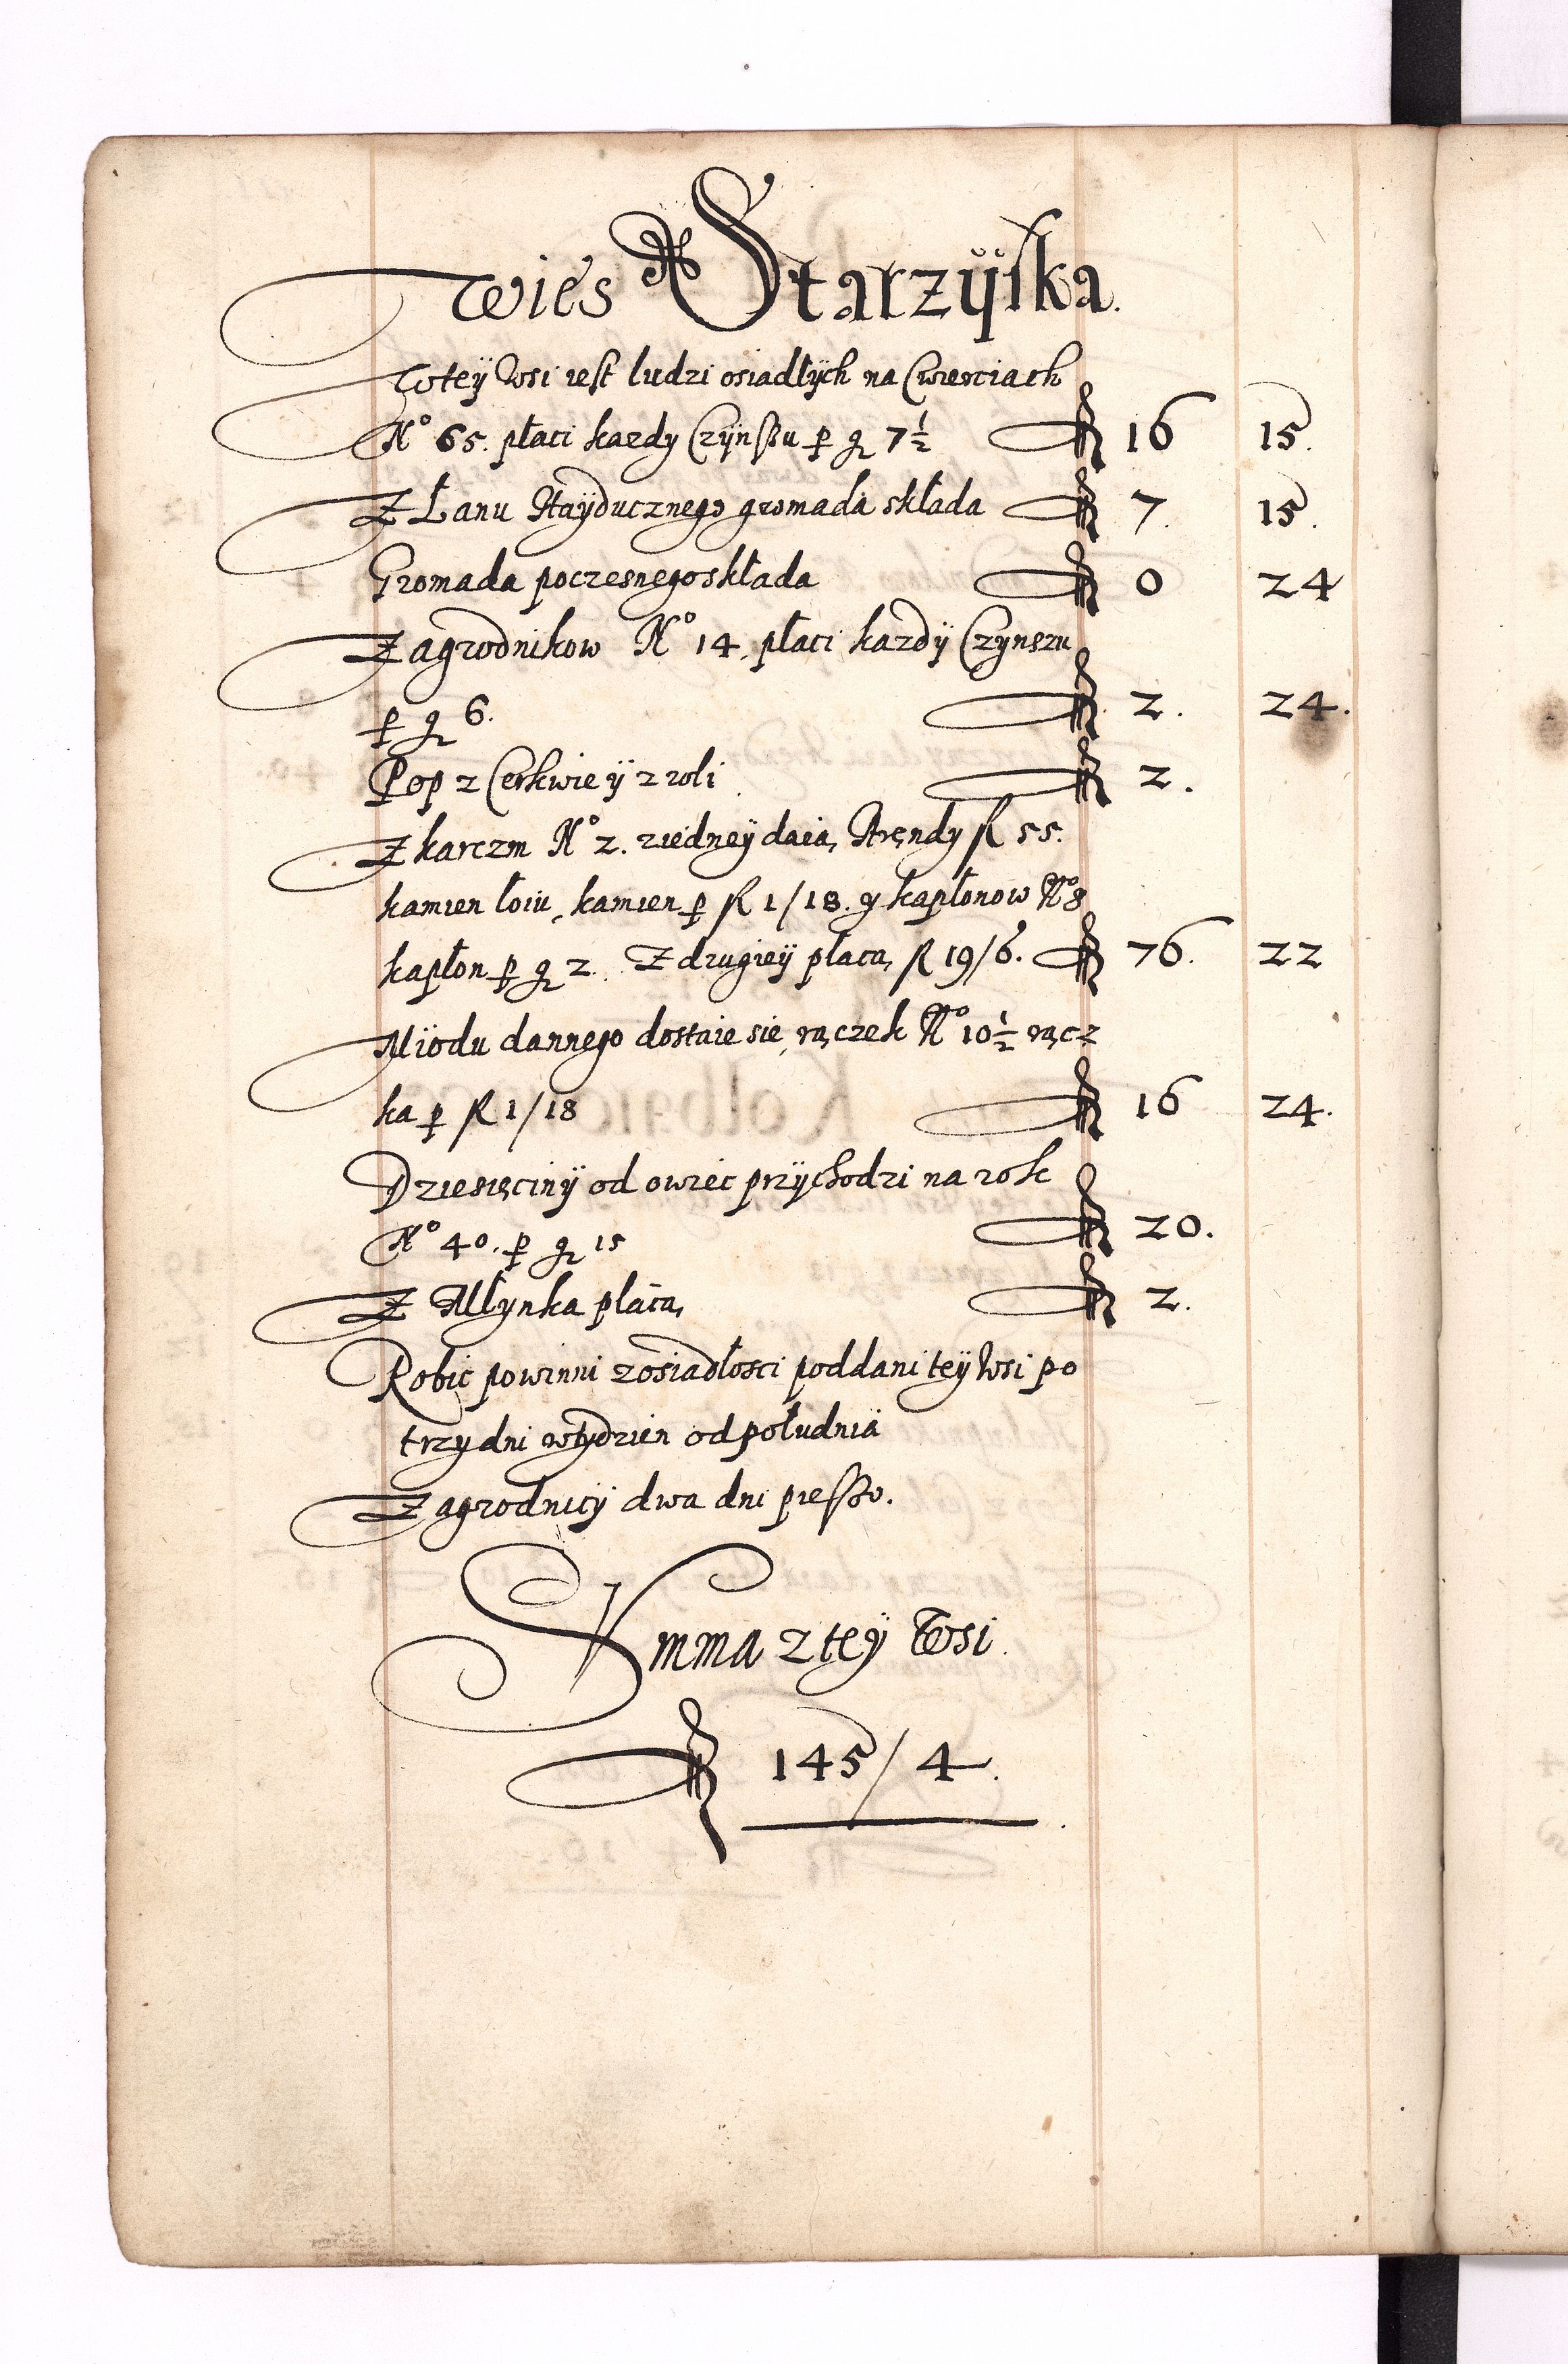 Wies Starzÿska.
Wteÿ Wsi iest ludzi osiadłÿch na Cwierciach
No 65. płaci kazdy Czÿnßu p gr 7½ fl 16 15.
Z Łanu Haÿducznego gromada składa fl 7. 15.
Gromada poczesnego składa fl 0 24
Zagrodnikow No 14. płaci kazdÿ Czynszu
p gr 6. fl 2. 24.
Pop z Cerkwie ÿ z roli fl 2.
Z karczm No 2. ziedneÿ daią Arendy fl 55.
kamien łoiu, kamien p fl 1/18. y kapłonow No 8
kapłon p gr 2. Z drugieÿ płacą fl 19/6. fl 76. 22
Miodu dannego dostaie się rączek No 10½ rącz
ka p fl 1/18 fl 16 24.
Dziesięcinÿ od owiec przÿchodzi na rok
No 40. p gr 15 fl 20.
Z Młynka płacą fl 2.
Robic powinni zosiadłosci poddani teÿ Wsi po
trzy dni wtydzien od południa
Zagrodnicÿ dwa dni pießo.
Summa z teÿ Wsi.
fl 145/4.